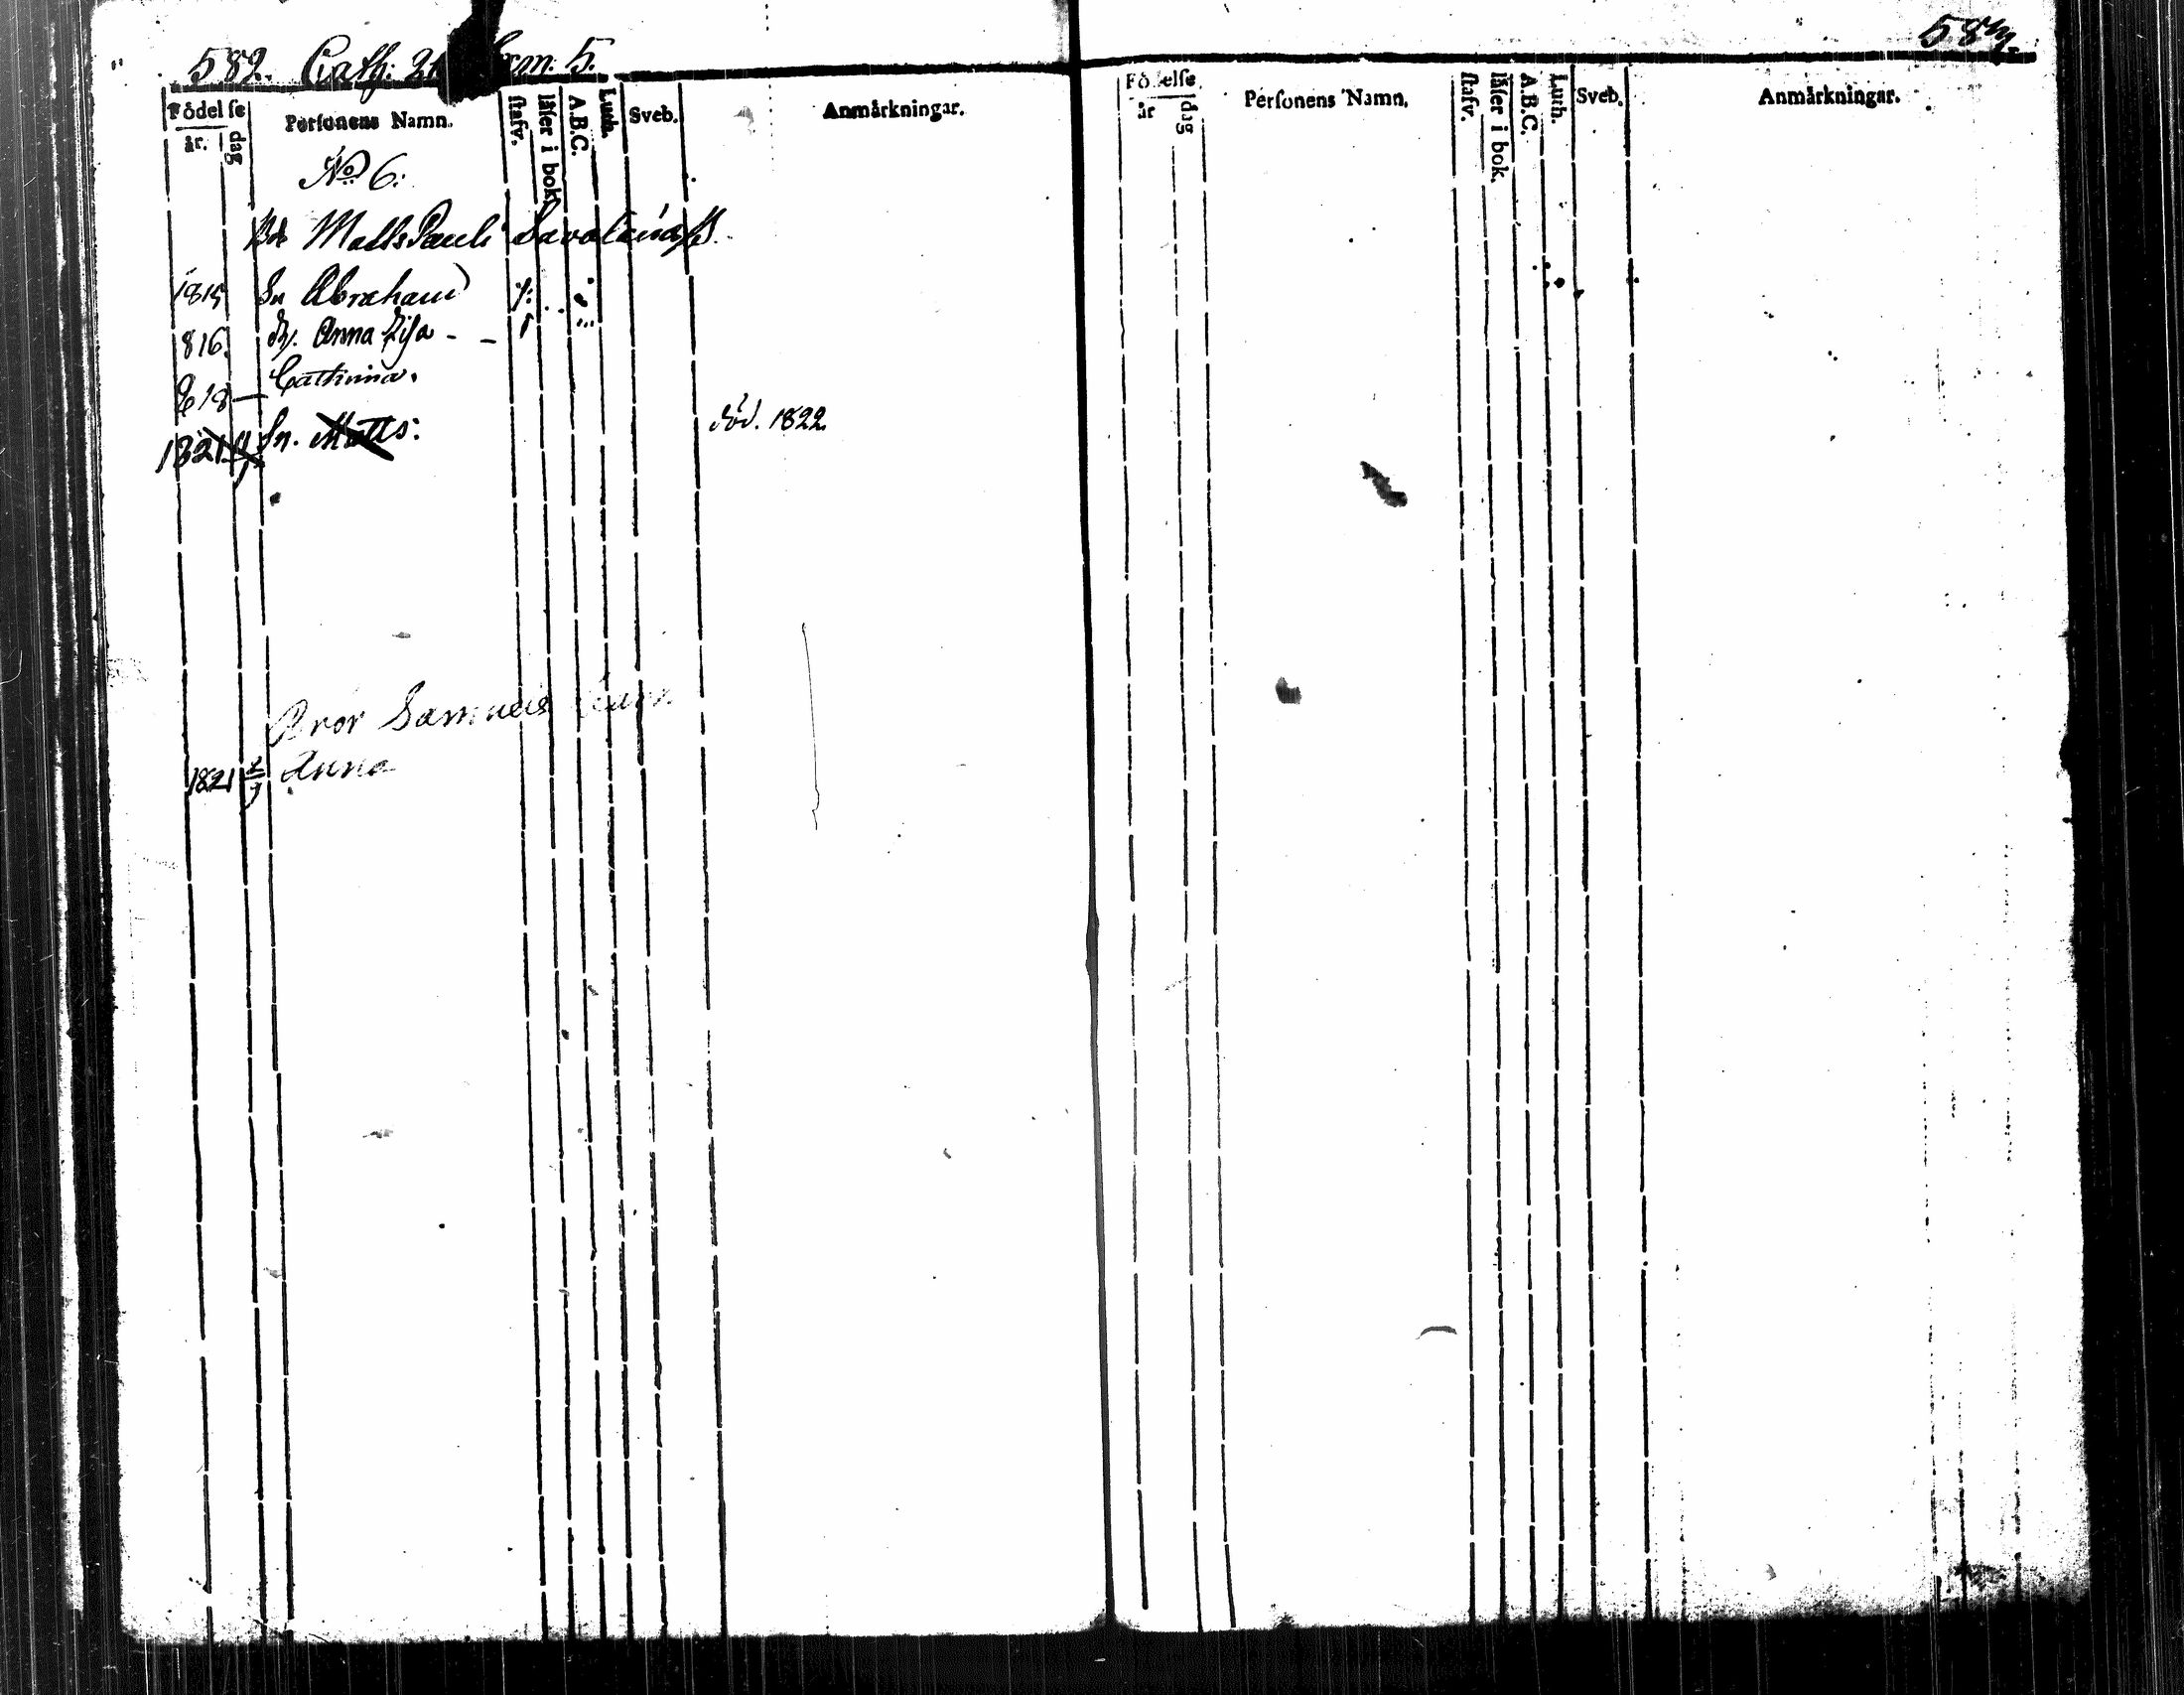 582. Cath: 21 5.
Födelse
år. dag
Perſonens Namn.
ſtafv. läſer i bok. A.B.C. Luth. Sveb.
Anmårkningar.
No 6:
Bd. Matts Pauli
1815 Sn Abraham
816. dr. Anna Lisa - -
818 — Cathrina.
1821 Sn. Matts: död. 1822
Bror Samuels
1821 Anna
Födelſe
år dag
Perſonens Namn.
ſtafv. läſer i bok. A.B.C. Luth. Sveb.
Anmårkningar.